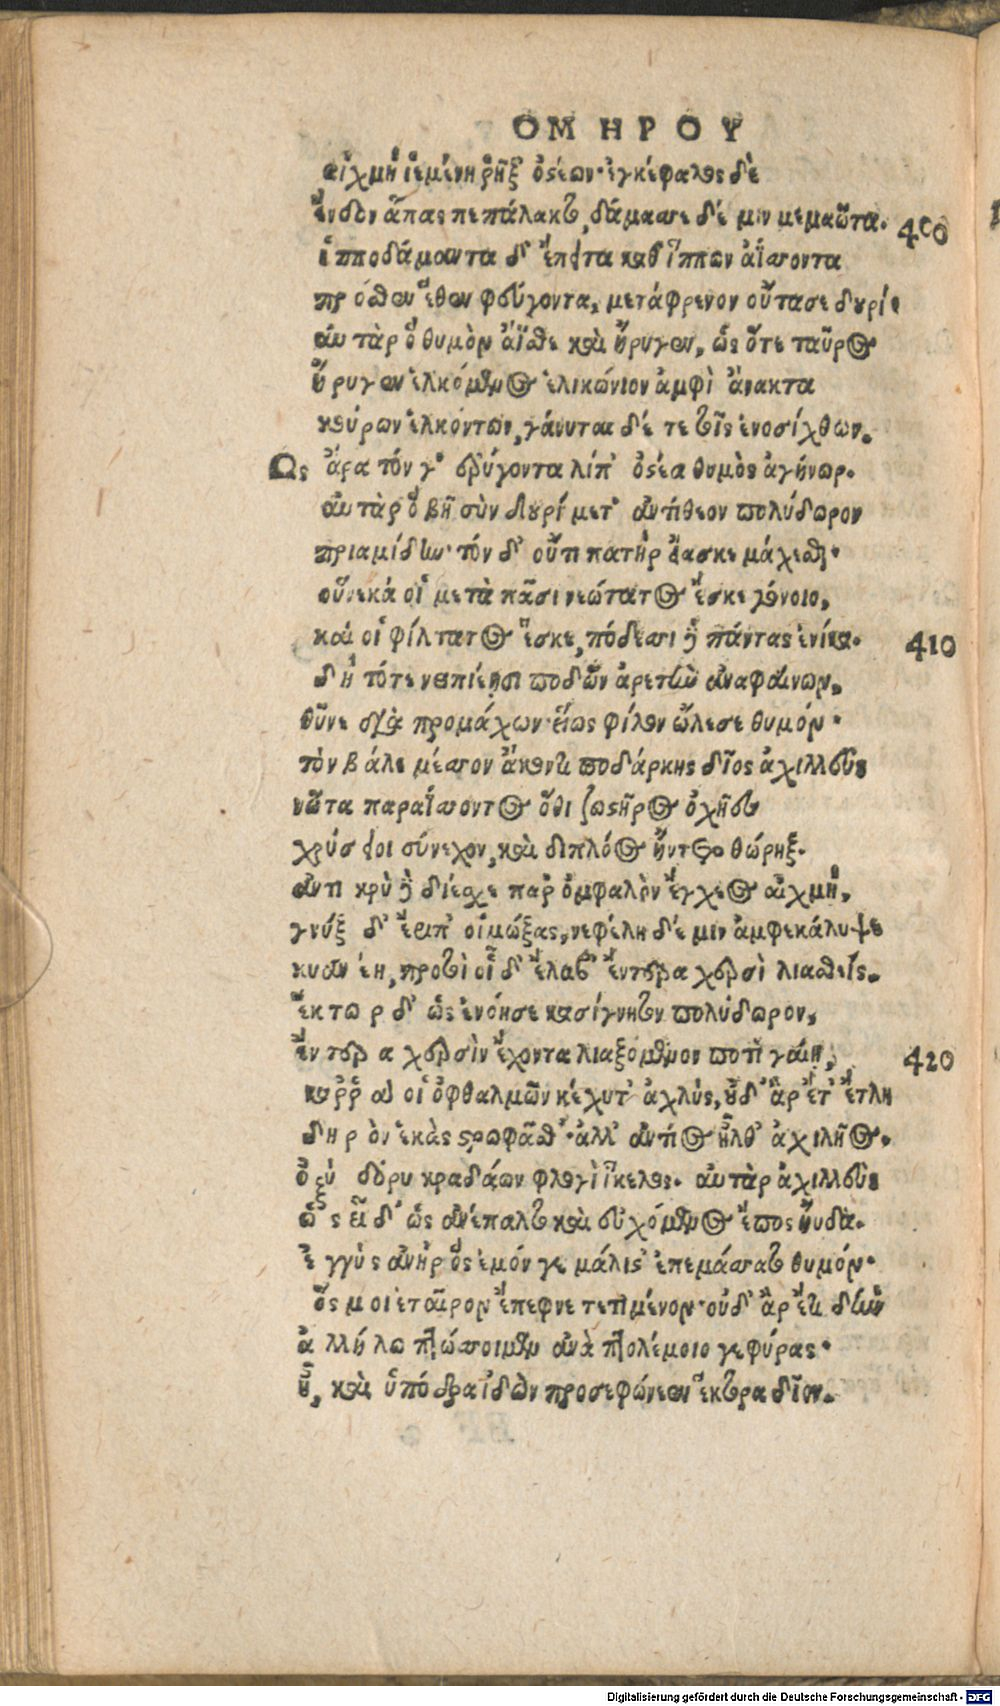 ΟΜΗΡΟΥ
αἰχμὴ ἱεμένη ῥῆξ' ὀστέον· ἐγκέφαλος δὲ
ἔνδον ἅπας πεπάλακτο, δάμασσε δέ μιν μεμαῶτα. 400
ἱπποδάμαντα δ' ἔπειτα καθ' ἵππων ἀΐσσοντα
πρόσθεν ἕθεν φεύγοντα, μετάφρενον οὔτασε δουρί·
αὐτὰρ ὁ θυμὸν ἄϊσθε καὶ ἤρυγεν, ὡς ὅτε ταῦρος
ἤρυγεν ἑλκόμενος ἑλικώνιον ἀμφὶ ἄνακτα
κούρων ἑλκόντων, γάνυται δέ τε τοῖς ἐνοσίχθων.
Ως ἄρα τόν γ' ἐρύγοντα λίπ' ὀστέα θυμὸς ἀγήνωρ.
αὐτὰρ ὁ βῆ σὺν δουρί μετ' ἀντίθεον πολύδωρον
πριαμίδην· τόν δ' οὔτι πατὴρ εἴασκε μάχεσθαι·
οὕνεκά οἱ μετὰ πᾶσι νεώτατος ἔσκε γόνοιο,
καί οἱ φίλτατος ἔσκε, πόδεσσι δὲ πάντας ἐνίκα. 410
δὴ τότε νηπιέῃσι ποδῶν ἀρετὴν ἀναφαίνων,
θῦνε διὰ προμάχων· εἵως φίλον ὤλεσε θυμόν·
τὸν βάλε μέσσον ἄκοντι ποδάρκης δῖος ἀχιλλεὺς
νῶτα παραΐσσοντος ὅθι ζωστῆρος ὀχῆες
χρύσειοι σύνεχον, καὶ διπλόος ἤντετο θώρηξ.
ἀντικρὺ δὲ διέσχε παρ' ὀμφαλὸν ἔγχεος αἰχμή,
γνύξ δ' ἔριπ' οἰμώξας, νεφέλη δέ μιν ἀμφεκάλυψε
κυανέη, προτὶ οἷ δ' ἔλαβ' ἔντερα χερσὶ λιασθείς.
ἕκτωρ δ' ὡς ἐνόησε κασίγνητον πολύδωρον,
ἔντερα χερσὶν ἔχοντα λιαζόμενον ποτὶ γαίῃ, 420
κάρ ῥά οἱ ὀφθαλμῶν κέχυτ' ἀχλύς, οὐδ' ἄρ ἔτ' ἔτλη
δηρὸν ἑκὰς στρωφᾶσθ'· ἀλλ' ἀντίος ἦλθ' ἀχιλῆος.
ὀξὺ δόρυ κραδάων φλογὶ ἴκελος. αὐτὰρ ἀχιλλεὺς
ὡς εἶδ' ὡς ἀνέπαλτο καὶ εὐχόμενος ἔπος ηὔδα.
ἐγγὺς ἀνὴρ ὃς ἐμόν γε μάλιστ' ἐπεμάσσατο θυμόν·
ὅς μοι ἑταῖρον ἔπεφνε τετιμένον· οὐδ' ἂρ ἔτι δὴν
ἀλλήλω πτώσσοιμεν ἀνὰ πτολέμοιο γεφύρας·
ἦ, καὶ ὑπόδρα ἰδὼν προσεφώνεεν ἕκτορα δῖον.
Digitalisierung gefördert durch die Deutsche Forschungsgemeinschaft - DFG